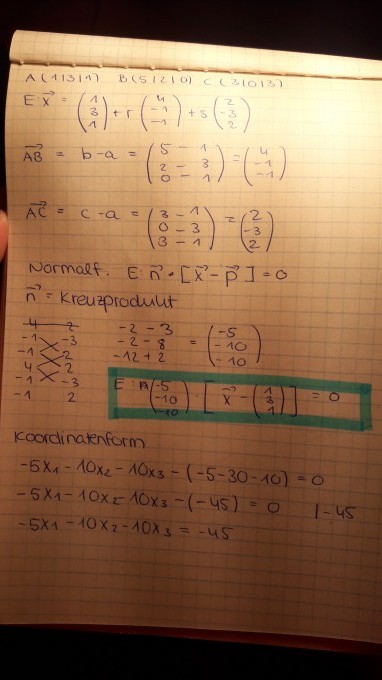 A(1|3|1) B(5|2|0) C(3|0|3)
E: x⃗ = (1 3 1) + r (4 -1 -1) + s (2 -3 2)
AB⃗ = b - a = (5 - 1 2 - 3 0 - 1) = (4 -1 -1)
AC⃗ = c - a = (3 - 1 0 - 3 3 - 1) = (2 -3 2)
Normalf. E: n⃗ • [x⃗ - p⃗] = 0
n⃗ = Kreuzprodukt
4 2
-1 -3 -2 - 3
-1 2 -2 - 8 = (-5 -10 -10)
4 2 -12 + 2
-1 -3
-1 2
E: (-5 -10 -10) · [x⃗ - (1 3 1)] = 0
Koordinatenform
-5x1 - 10x2 - 10x3 - (-5-30-10) = 0
-5x1 - 10x2 - 10x3 - (-45) = 0 |-45
-5x1 - 10x2 - 10x3 = -45